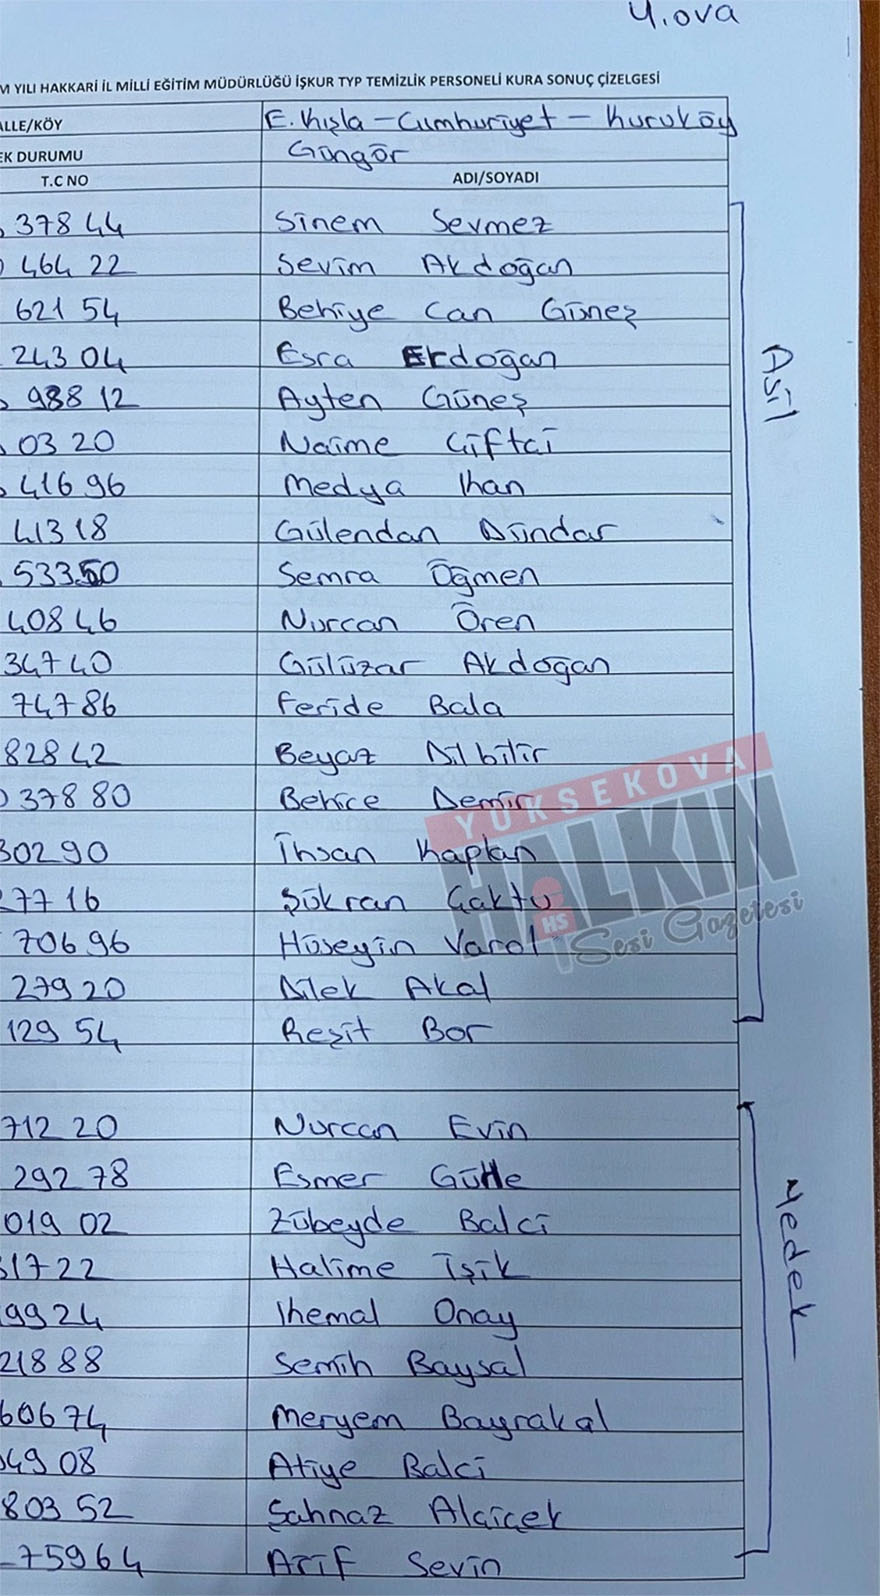 Y.ova
M YILI HAKKARİ İL MİLLİ EĞİTİM MÜDÜRLÜĞÜ İŞKUR TYP TEMİZLİK PERSONELİ KURA SONUÇ ÇİZELGESİ
ALLE/KÖY E. Kışla - Cumhuriyet - Kuruköy
EK DURUMU Güngör
T.C NO ADI/SOYADI
378 44 Sinem Sevmez
464 22 Sevim Akdoğan
621 54 Behiye Can Güneş
243 04 Esra Erdoğan
988 12 Ayten Güneş
03 20 Naime Çiftçi
416 96 Medya İhan
413 18 Gülendan Dündar
533 50 Semra Öğmen
408 46 Nurcan Ören
347 40 Gülüzar Akdoğan
747 86 Feride Bala
828 42 Beyaz Dilbilir
378 80 Behice Demir
302 90 İhsan Kaplan
77 16 Şükran Çaktu
706 96 Hüseyin Varol
279 20 Dilek Akal
129 54 Reşit Bor
Asil
712 20 Nurcan Evin
292 78 Esmer Gülle
019 02 Zübeyde Balci
17 22 Halime Işik
99 24 Onay
218 88 Semih Baysal
606 74 Meryem Bayrakal
49 08 Atiye Balci
803 52 Şahnaz Alçiçek
759 64 Arif Sevin
Yedek
YÜKSEKOVA
HALKIN
HS
Sesi Gazetesi